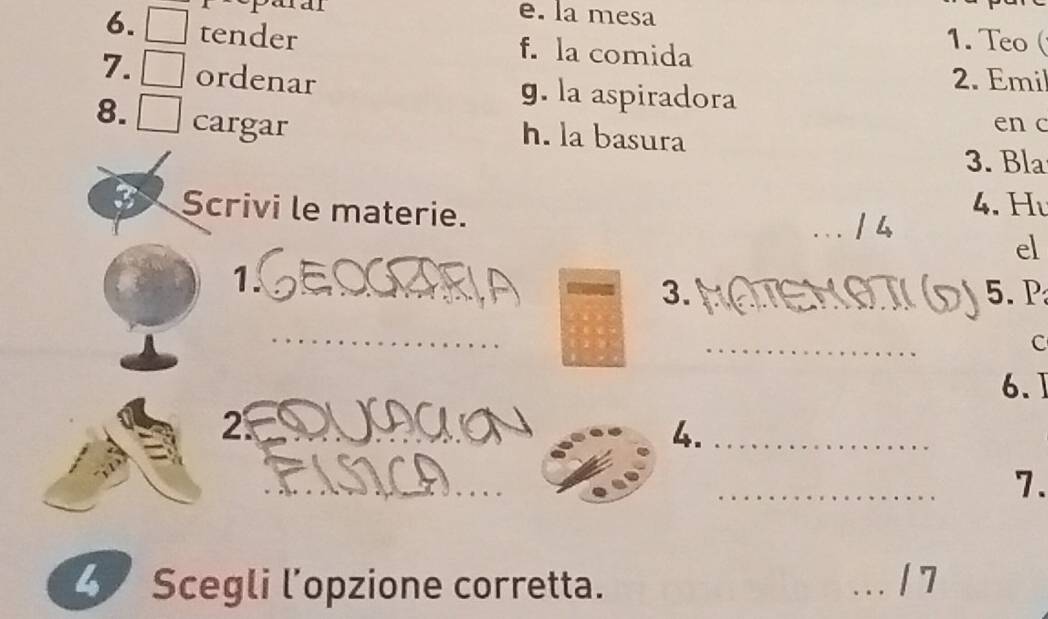 6. tender
7. ordenar
8. cargar
e. la mesa
f. la comida
g. la aspiradora
h. la basura
3 Scrivi le materie.
... / 4
1. GEOGRAFIA
2. EDUCACION
FISICA
3.
4.
4 Scegli l'opzione corretta.
... / 7
1. Teo (
2. Emil
en c
3. Bla
4. Hu
el
5. Pa
c
6.
7.